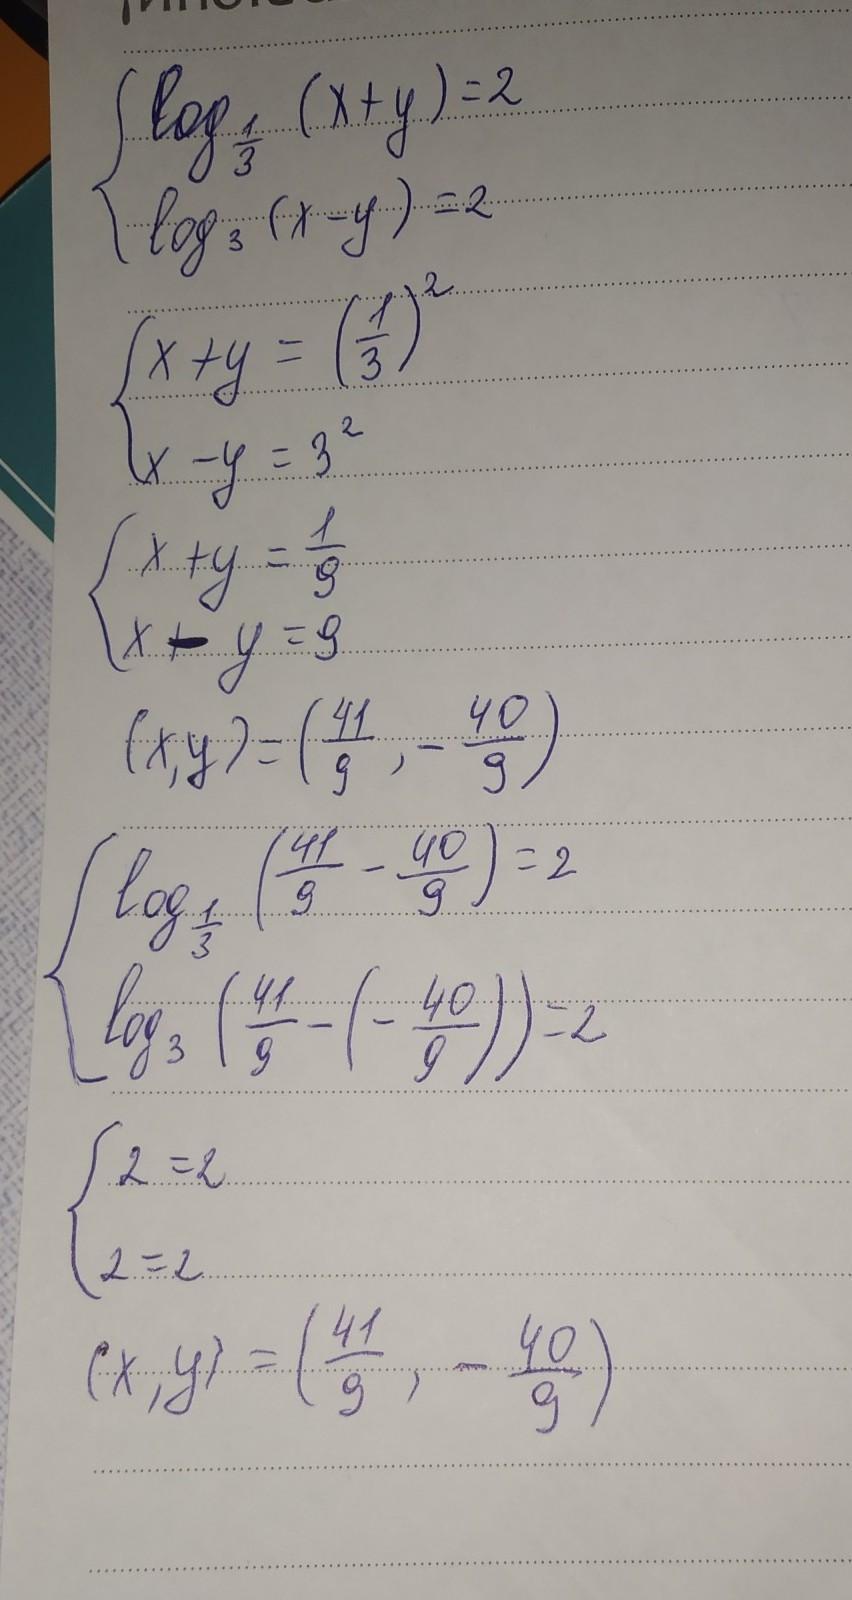 { log_{1/3} (x+y) = 2
log_3 (x-y) = 2
{ x+y = (1/3)^2
x-y = 3^2
{ x+y = 1/9
x-y = 9
(x,y) = (41/9, -40/9)
{ log_{1/3} (41/9 - 40/9) = 2
log_3 (41/9 - (-40/9)) = 2
{ 2=2
2=2
(x,y) = (41/9, -40/9)